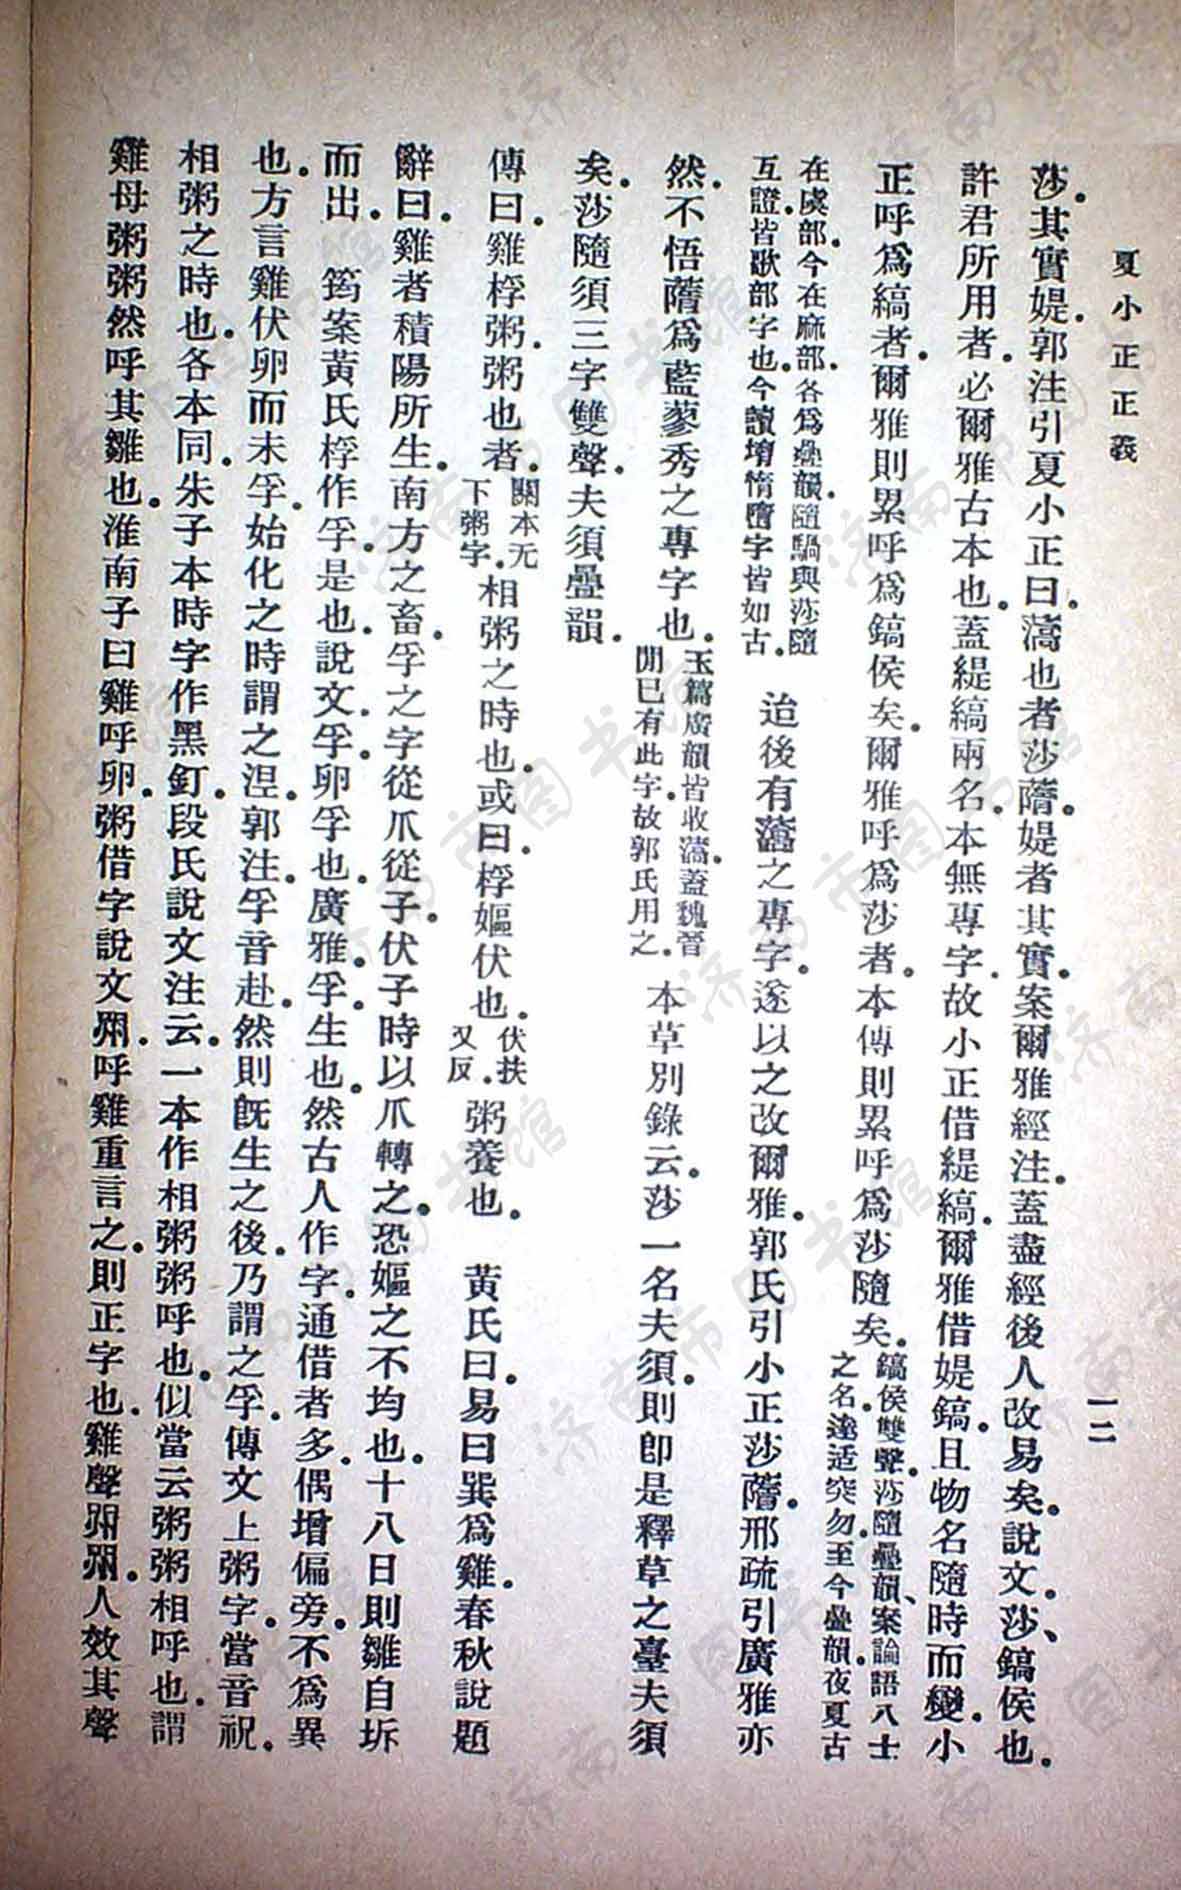 夏小正正義
一二
莎。其實媞。郭注引夏小正曰。薃也者莎蓆。媞者其實。案爾雅經注。蓋盡經後人改易矣。說文。莎、鎬侯也。
許君所用者。必爾雅古本也。蓋緹縞兩名。本無專字。故小正借緹縞。爾雅借媞鎬。且物名隨時而變。小
正呼爲縞者。爾雅則累呼爲鎬侯矣。爾雅呼爲莎者。本傳則累呼爲莎隨矣。
鎬侯雙聲。莎隨疊韻、案論語八士
之名。逵适突忽。至今疊韻。夜夏古
在虞部。今在麻部。各爲疊韻。隨騧與莎隨
互證。皆歌部字也。今讀墮惰隨字皆如古。
迨後有之專字。遂以之改爾雅。郭氏引小正莎。邢疏引廣雅亦
然。不悟爲藍蓼秀之專字也。
玉篇廣韻皆收薃。蓋魏晉
閒已有此字。故郭氏用之。
本草別錄云。莎一名夫須。則卽是釋草之臺夫須
矣。莎隨須三字雙聲。夫須疊韻。
傳曰。雞桴粥。粥也者。
關本无
下粥字。
相粥之時也。或曰。桴嫗伏也。
伏扶
又反。
粥養也。　黃氏曰。易曰巽爲雞。春秋說題
辭曰。雞者積陽所生。南方之畜。孚之字從爪從子。伏子時以爪轉之。恐嫗之不均也。十八日則雛自坼
而出。　筠案黃氏桴作孚。是也。說文。孚。卵孚也。廣雅。孚。生也。然古人作字。通借者多。偶增偏旁。不爲異
也。方言雞伏卵而未孚。始化之時謂之涅。郭注。孚音赴。然則旣生之後。乃謂之孚。傳文上粥字。當音祝。
相粥之時也。各本同。朱子本時字作黑釘。段氏說文注云。一本作相粥粥呼也。似當云粥粥相呼也。謂
雞母粥粥然呼其雛也。淮南子曰雞呼卵。粥借字說文喌。呼雞重言之。則正字也。雞聲喌喌。人效其聲